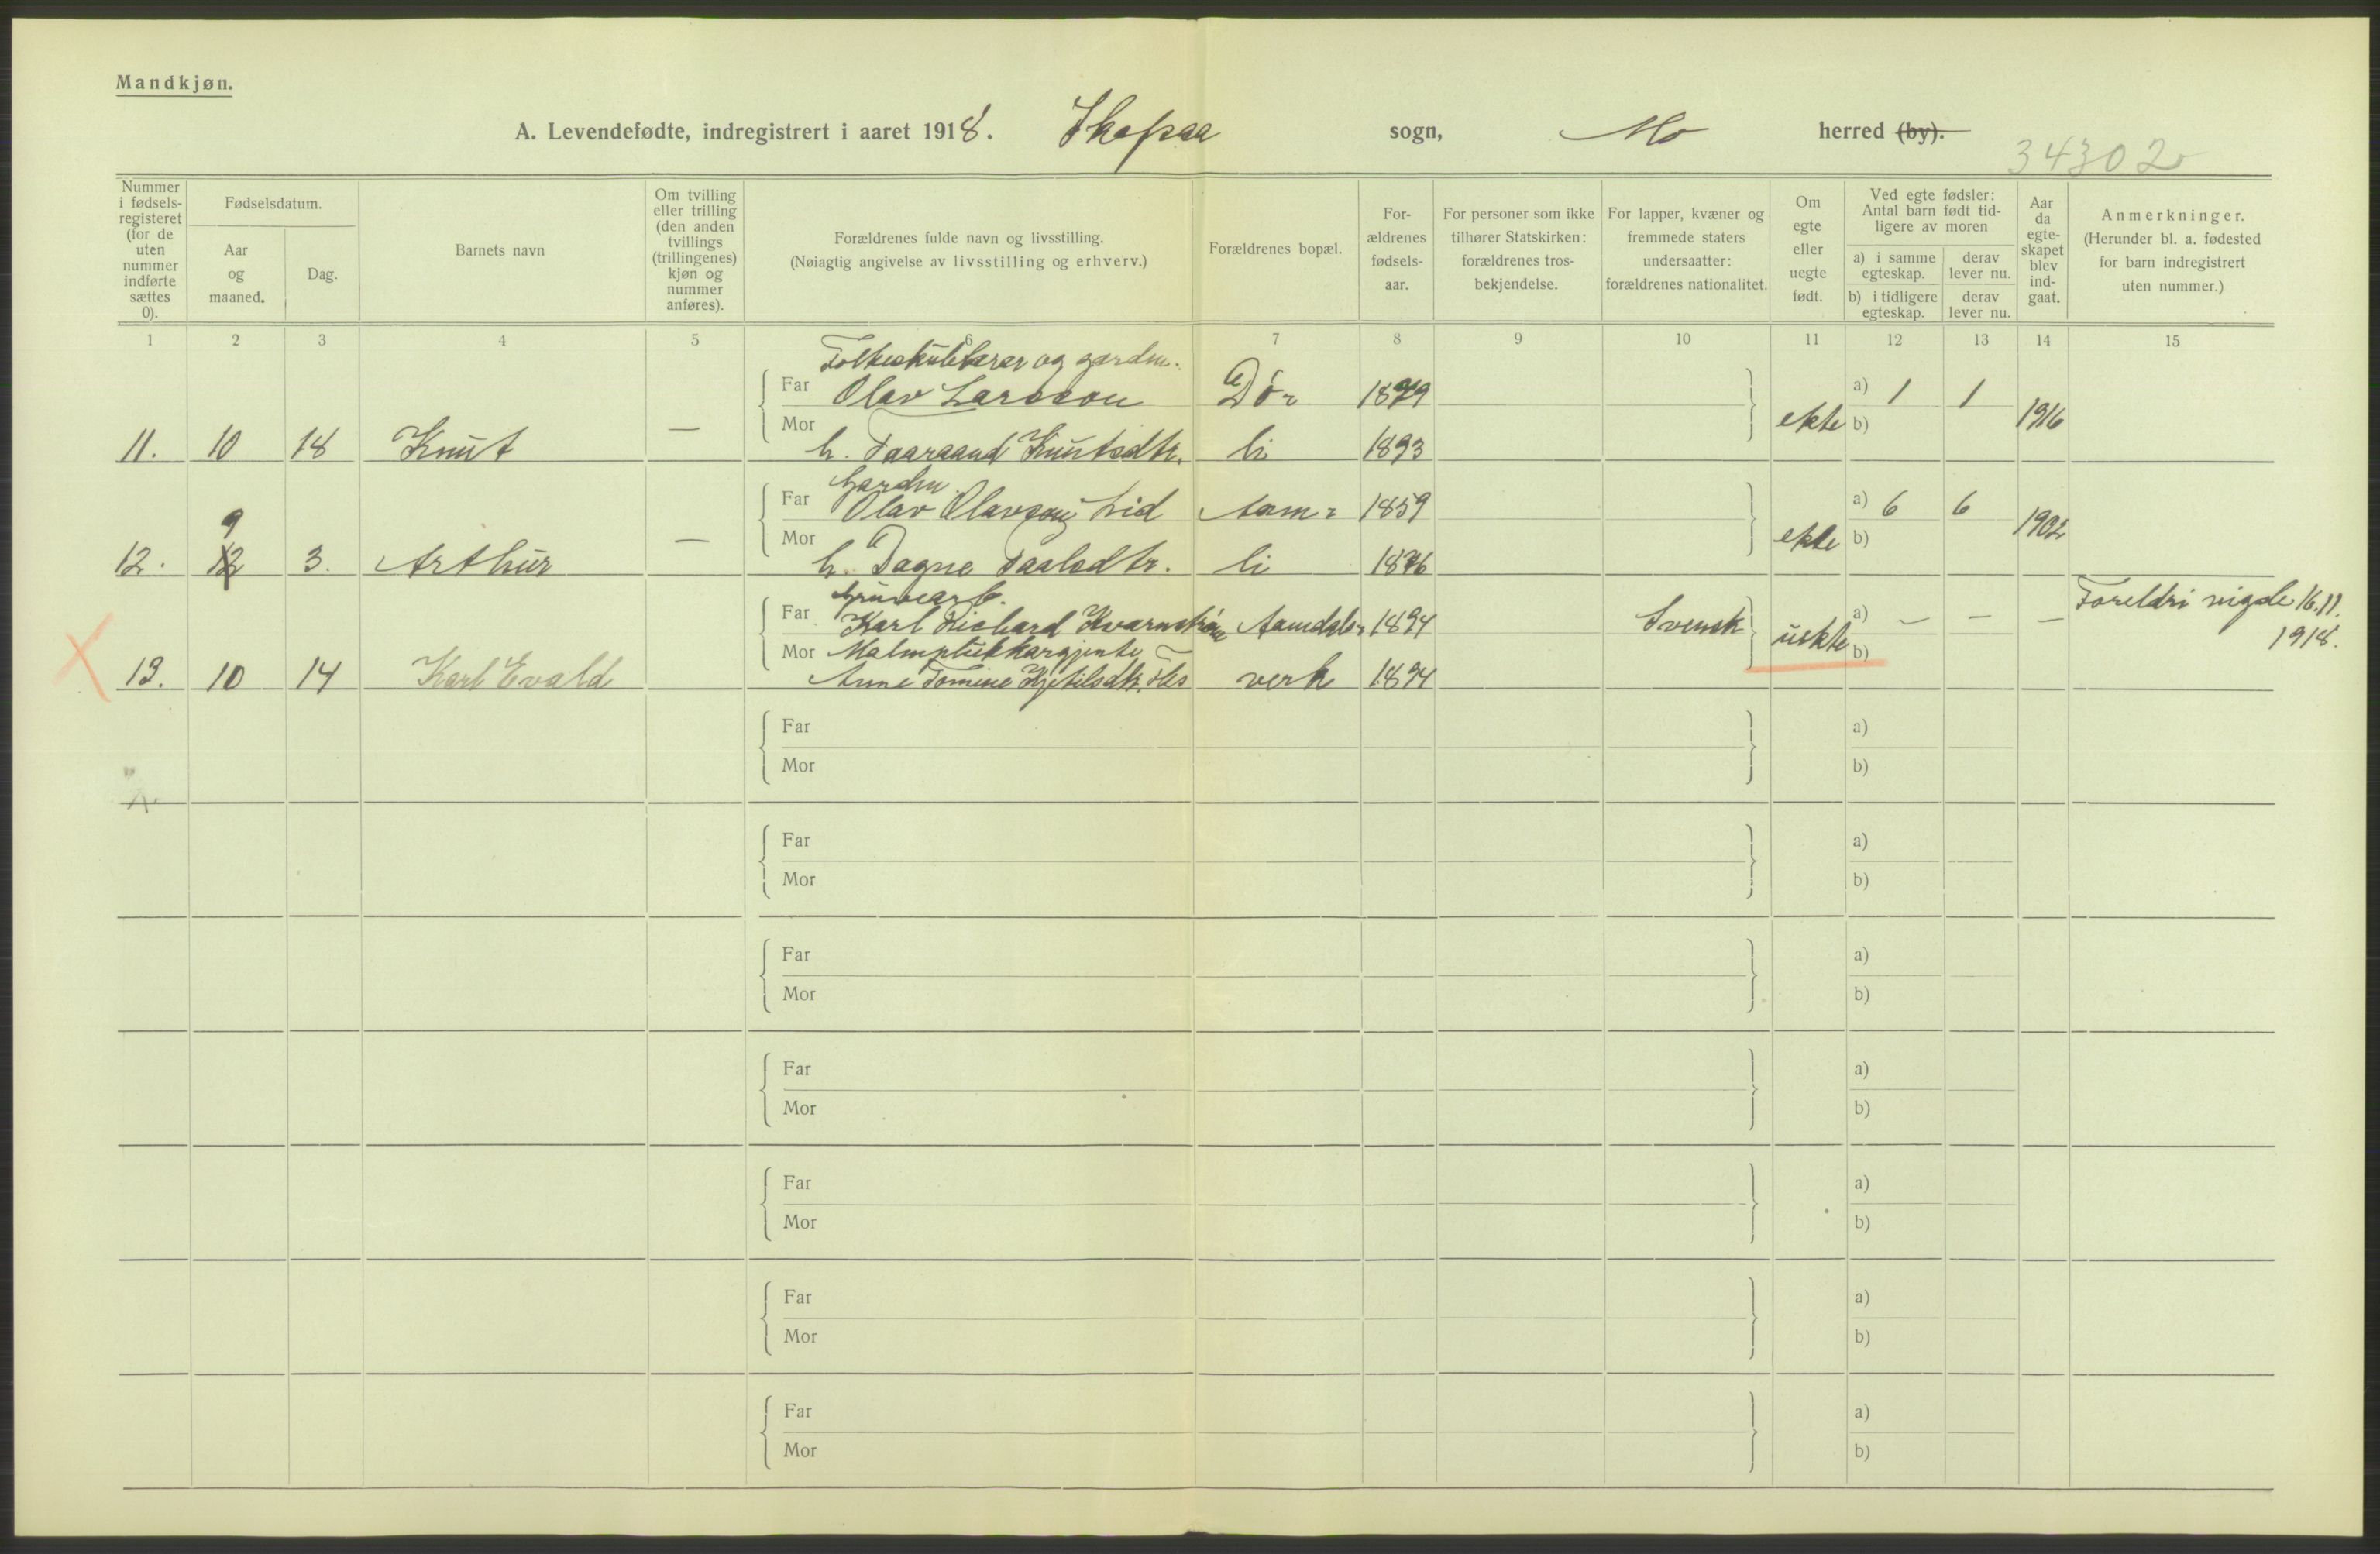 Mandkjøn.
A. Levendefødte, indregistrert i aaret 1918. Skafsaa sogn, Mo herred (by).
34302
Nummer i fødsels-registeret (for de uten nummer indførte sættes 0).
Fødselsdatum.
Aar og maaned.
Dag.
Barnets navn
Om tvilling eller trilling (den anden tvillings (trillingenes) kjøn og nummer anføres).
Forældrenes fulde navn og livsstilling.
(Nøiagtig angivelse av livsstilling og erhverv.)
Forældrenes bopæl.
For-ældrenes fødsels-aar.
For personer som ikke tilhører Statskirken: forældrenes tros-bekjendelse.
For lapper, kvæner og fremmede staters undersaatter: forældrenes nationalitet.
Om egte eller uegte født.
Ved egte fødsler: Antal barn født tid-ligere av moren
a) i samme egteskap.
derav lever nu.
b) i tidligere egteskap.
derav lever nu.
Aar da egte-skapet blev ind-gaat.
Anmerkninger.
(Herunder bl. a. fødested for barn indregistrert uten nummer.)
1 2 3 4 5 6 7 8 9 10 11 12 13 14 15
Folkeskulelærar og gardm.
Far Olav Larsson Dø- 1879 a) 1 1
Mor ekte b) 1916
11. 10 18 Knut — h. Taaraand Knutsdtr. li 1893
Gardm.
Far Olav Olavson Lid Aam- 1859 a) 6 6
9
Mor ekte b) 1902
12. 12 3. Arthur — h. Dagne Paalsdtr. li 1876
Gruvearb.
Foreldri vigde 16.11.
Far Karl Richard Kvarnström Aamdals- 1894 Svensk uekte a) – – –
1918.
Mor Malmplukkargjente b)
13. 10 14 Karl Evald Anne Tomine Kjetilsdtr. verk 1894
Far a)
Mor b)
Far a)
Mor b)
Far a)
Mor b)
Far a)
Mor b)
Far a)
Mor b)
Far a)
Mor b)
Far a)
Mor b)